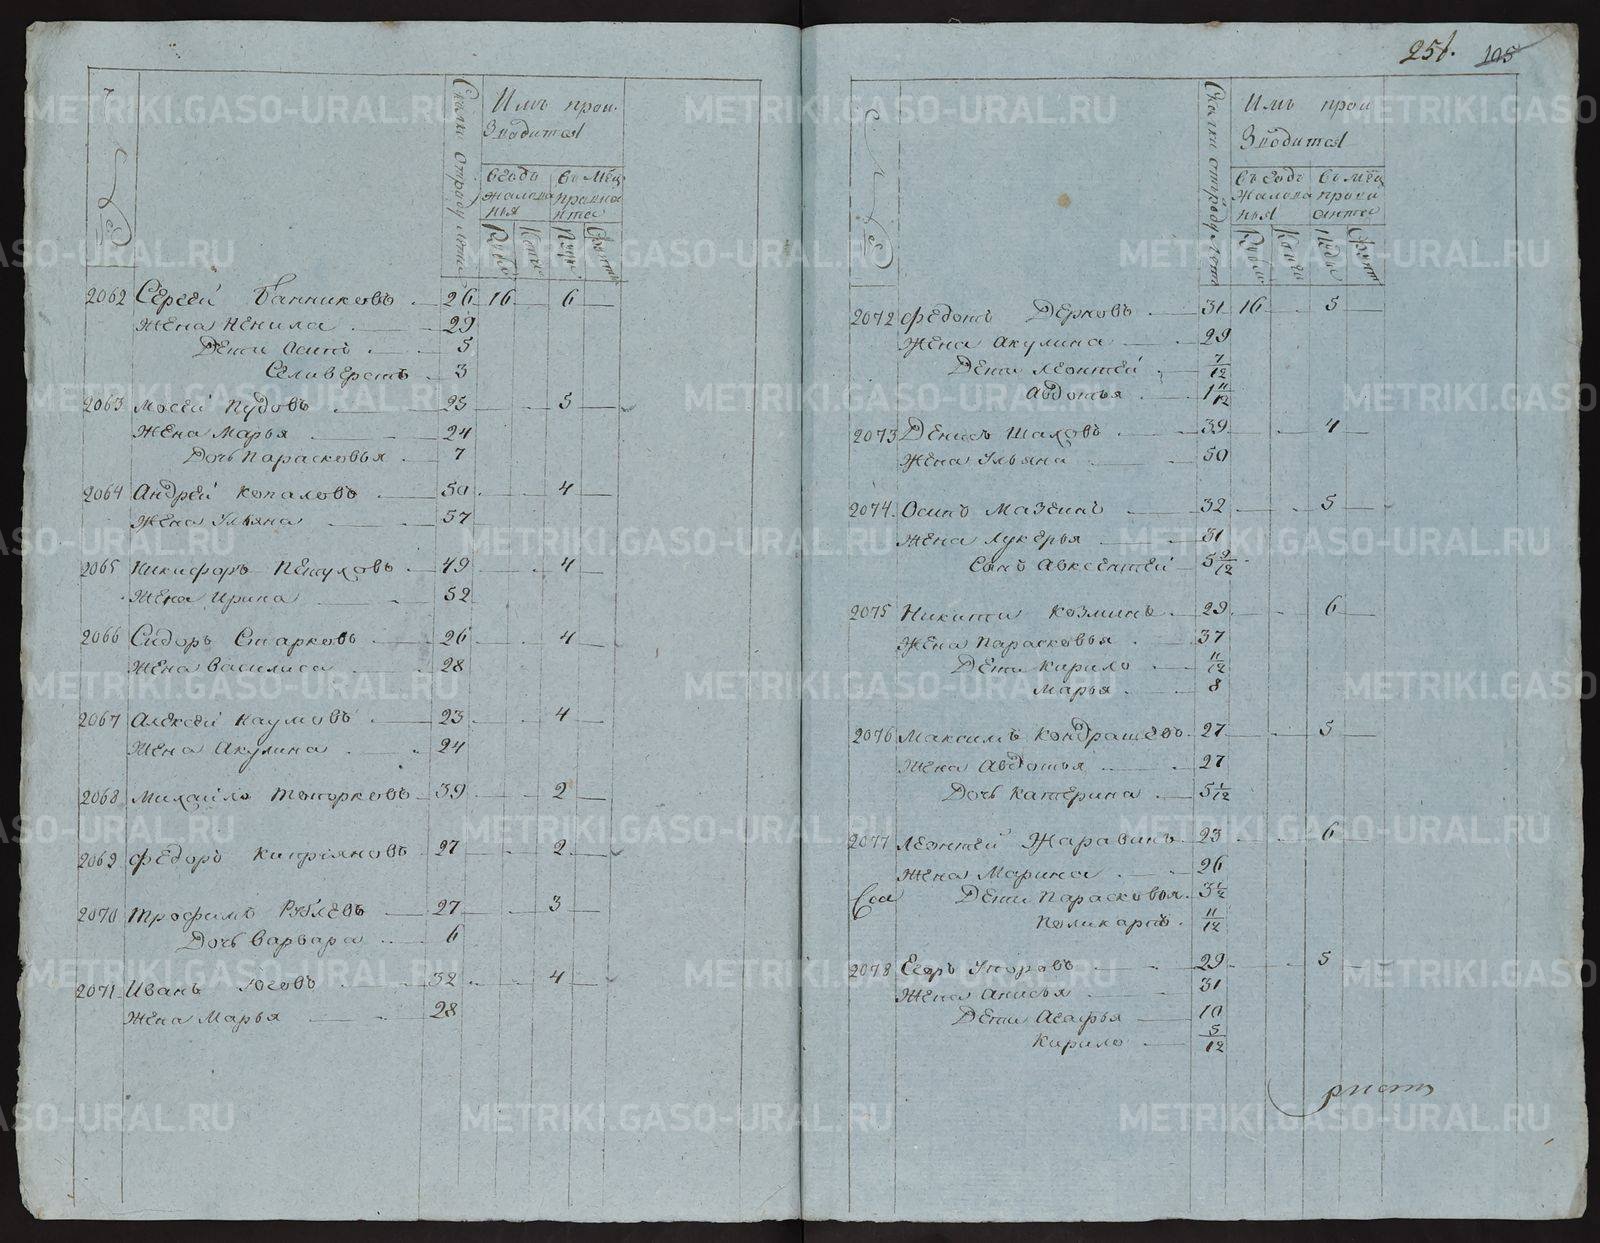 251. 105
№
Сколки отроду лѣтъ
Имъ прои
зводится
въ годъ
жалова
нья
въ мѣц
провиа
нта
Рубли
Копи
Пуды
Фунты
2062 Сергей Банниковъ 26 16 6
жена Ненила 29
Дети Осипъ 5
Селиверстъ 3
2063 Мосей Пудовъ 25 5
жена Марья 24
Дочь Парасковья 7
2064 Андрей Копаловъ 50 4
жена Ульяна 57
2065 Никифоръ Петуховъ 49 4
жена Ирина 52
2066 Сидоръ Старковъ 26 4
жена Василиса 28
2067 Алексей Наумовъ 23 4
жена Акулина 24
2068 Михайло Топорковъ 39 2
2069 Федоръ Кипрiяновъ 27 2
2070 Трофимъ Рублевъ 27 3
Дочь Варвара 6
2071 Иванъ Юговъ 32 4
жена Марья 28
№
Сколки отроду лѣтъ
Имъ прои
зводится
въ годъ
жалова
нья
въ мѣц
прови
анта
Рубли
Копи
Пуды
Фунт
2072 Федотъ Дерновъ 31 16 5
жена Акулина 29
Дети Леонтей 7/12
Авдотья 1 11/12
2073 Денисъ Шаховъ 39 4
жена Ульяна 50
2074 Осипъ Мазеинъ 32 5
жена Лукерья 31
Сынъ Авксентей 5 9/12
2075 Никита Козминъ 29 6
жена Парасковья 37
Дети Кирило 11/12
Марья 8
2076 Максимъ Кондрашевъ 27 5
жена Авдотья 27
Дочь Катерина 5 1/12
2077 Леонтей Жаравинъ 23 6
жена Марина 26
Дети Парасковья 3 1/2
Поликарпъ 11/12
2078 Егоръ Упоровъ 29 5
жена Анисья 31
Дети Агафья 10
Кирило 5/12
METRIKI.GASO-URAL.RU